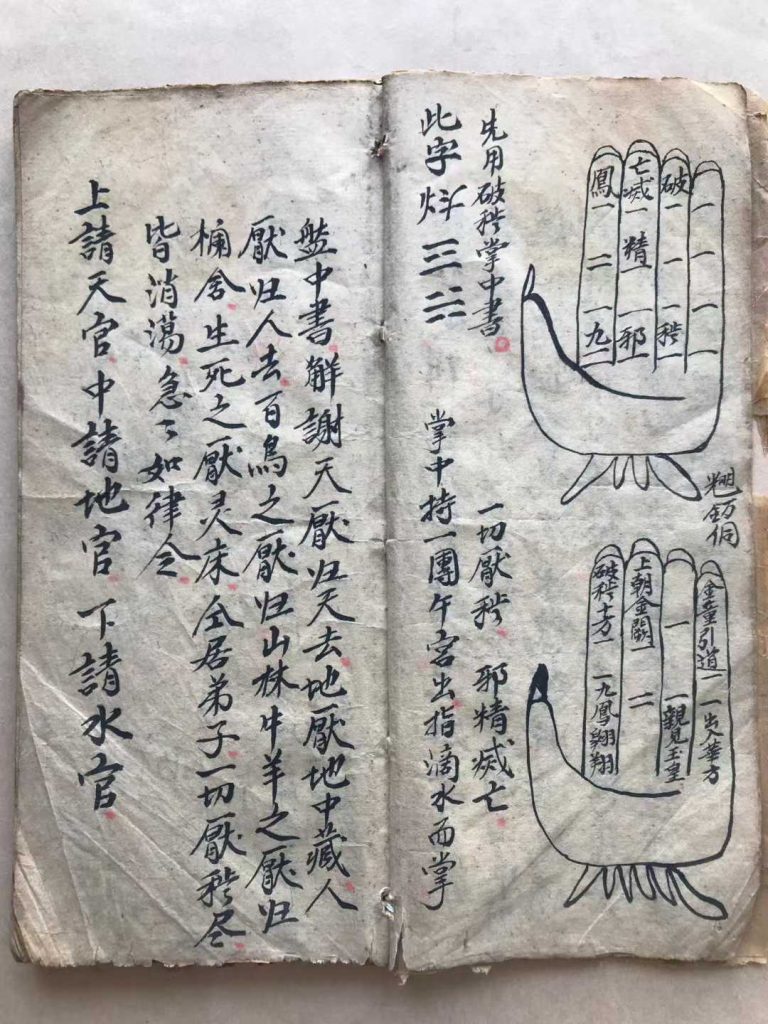 鳳 二 九
亡滅 精 邪
破 一 一 穢
一 一 一 一
金童引道 一出入華方
一 一親見玉皇
上朝金闕 二
破秽十方 一九鳳翱翔
先用破秽掌中書
一切厭秽 邪精滅亡
此字 三
掌中持一團午宮出指滴水而掌
盤中書解謝天厭归天去地厭地中藏人
厭归人去百鳥之厭归山林牛羊之厭归
欄舍生死之厭灵床仝居弟子一切厭秽尽
皆消蕩急〻如律令
上請天官中請地官下請水官